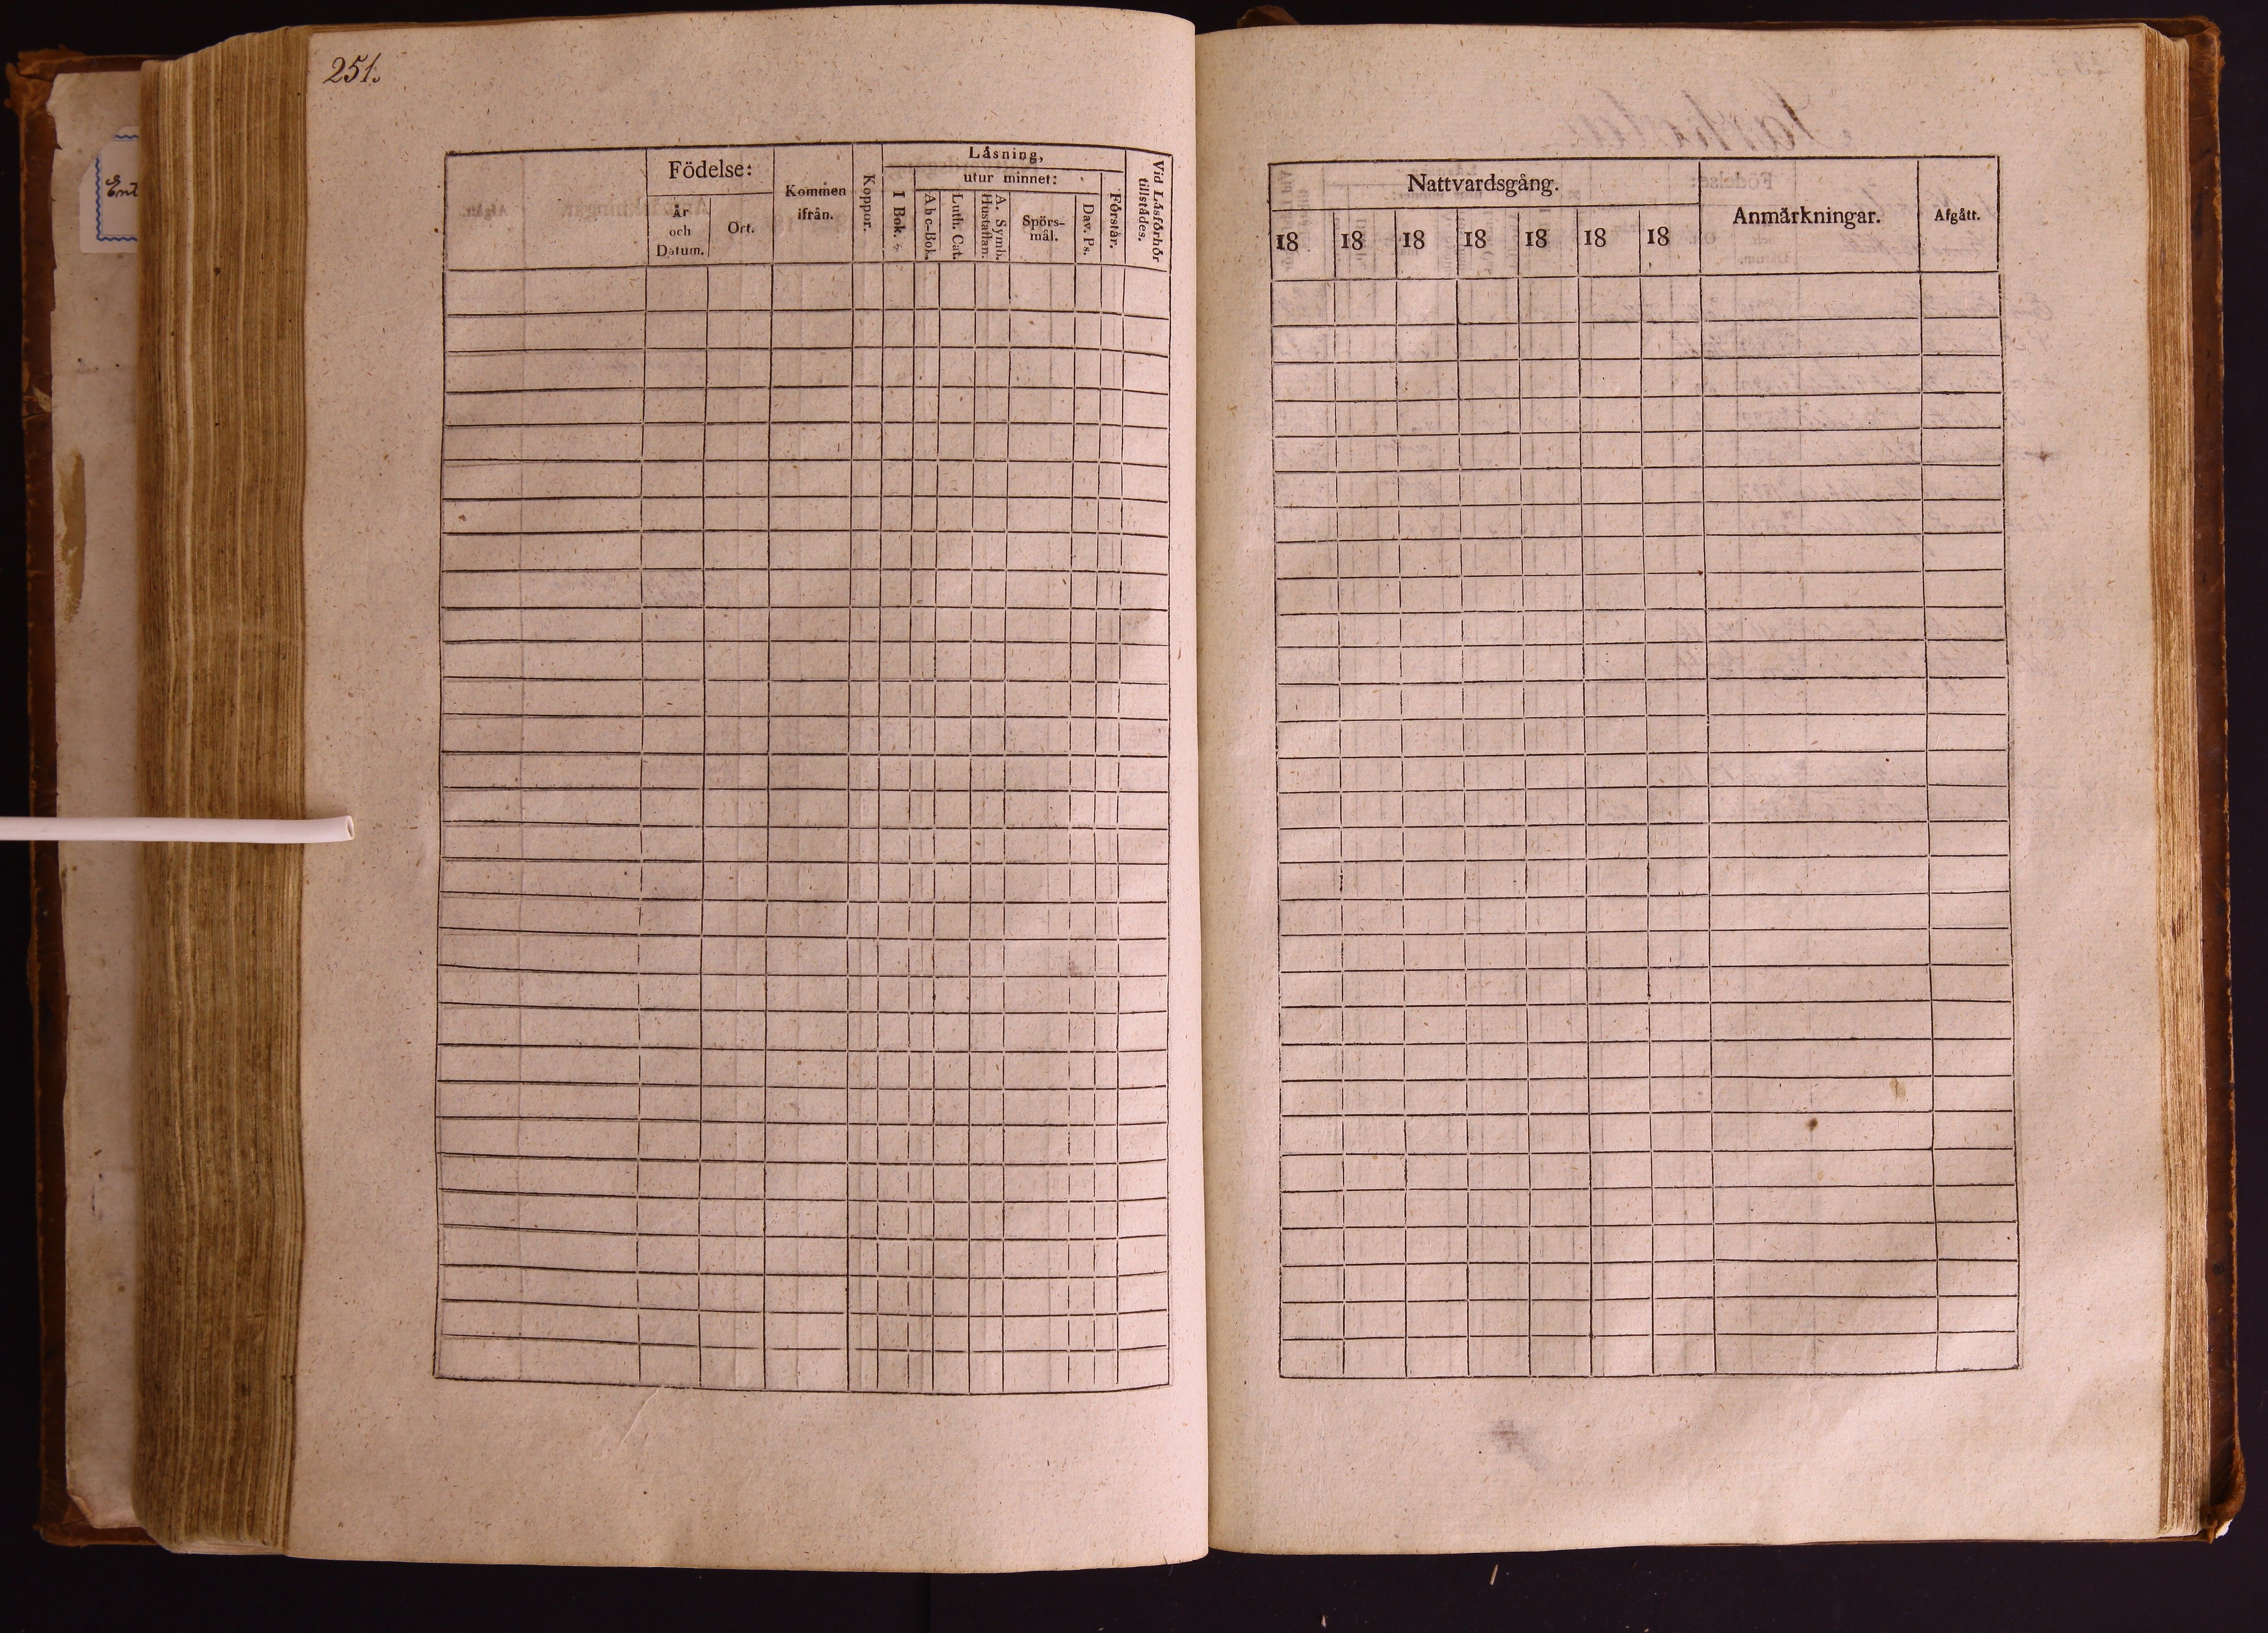 251.
Ent
Födelse:
År
och
Datum.
Ort.
Kommen
ifrån.
Koppor.
Låsning,
I Bok.
utur minnet:
Abc-Bok.
Luth. Cat.
A. Symb.
Hustaflan.
Spörs-
mål.
Dav. Ps.
Förstår.
Vid Låsförhör
tillstådes.
Nattvardsgång.
18 18 18 18 18 18 18
Anmärkningar.
Afgått.